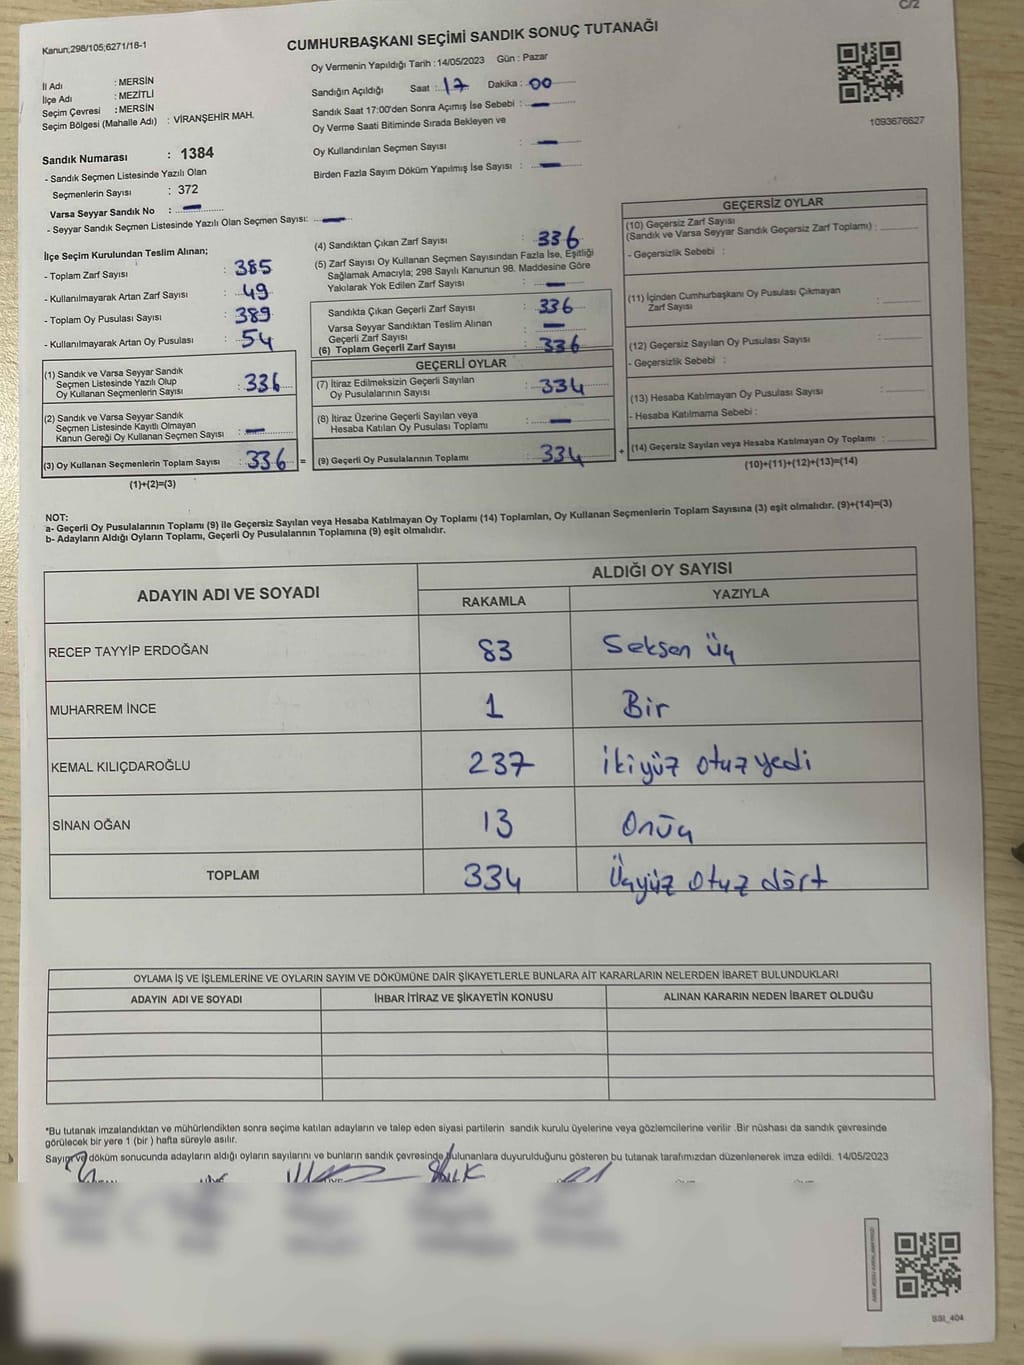 C/2
Kanun;298/105;6271/16-1
CUMHURBAŞKANI SEÇİMİ SANDIK SONUÇ TUTANAĞI
İl Adı : MERSİN
İlçe Adı : MEZİTLİ
Seçim Çevresi : MERSİN
Seçim Bölgesi (Mahalle Adı) : VİRANŞEHİR MAH.
Oy Vermenin Yapıldığı Tarih : 14/05/2023 Gün : Pazar
Sandığın Açıldığı Saat : 17 Dakika : 00
Sandık Saat 17:00'den Sonra Açımış İse Sebebi : —
Oy Verme Saati Bitiminde Sırada Bekleyen ve
Oy Kullandırılan Seçmen Sayısı : —
Birden Fazla Sayım Döküm Yapılmış İse Sayısı : —
1093676627
Sandık Numarası : 1384
- Sandık Seçmen Listesinde Yazılı Olan
Seçmenlerin Sayısı : 372
Varsa Seyyar Sandık No : —
- Seyyar Sandık Seçmen Listesinde Yazılı Olan Seçmen Sayısı: —
İlçe Seçim Kurulundan Teslim Alınan;
- Toplam Zarf Sayısı : 385
- Kullanılmayarak Artan Zarf Sayısı : 49
- Toplam Oy Pusulası Sayısı : 389
- Kullanılmayarak Artan Oy Pusulası : 54
(1) Sandık ve Varsa Seyyar Sandık
Seçmen Listesinde Yazılı Olup
Oy Kullanan Seçmenlerin Sayısı : 336
(2) Sandık ve Varsa Seyyar Sandık
Seçmen Listesinde Kayıtlı Olmayan
Kanun Gereği Oy Kullanan Seçmen Sayısı : —
(3) Oy Kullanan Seçmenlerin Toplam Sayısı : 336
(1)+(2)=(3)
(4) Sandıktan Çıkan Zarf Sayısı : 336
(5) Zarf Sayısı Oy Kullanan Seçmen Sayısından Fazla İse, Eşitliği
Sağlamak Amacıyla; 298 Sayılı Kanunun 98. Maddesine Göre
Yakılarak Yok Edilen Zarf Sayısı : —
Sandıkta Çıkan Geçerli Zarf Sayısı : 336
Varsa Seyyar Sandıktan Teslim Alınan
Geçerli Zarf Sayısı : —
(6) Toplam Geçerli Zarf Sayısı : 336
GEÇERLİ OYLAR
(7) İtiraz Edilmeksizin Geçerli Sayılan
Oy Pusulasının Sayısı : 334
(8) İtiraz Üzerine Geçerli Sayılan veya
Hesaba Katılan Oy Pusulası Toplamı : —
= (9) Geçerli Oy Pusulalarının Toplamı : 334 +
GEÇERSİZ OYLAR
(10) Geçersiz Zarf Sayısı
(Sandık ve Varsa Seyyar Sandık Geçersiz Zarf Toplamı) :
- Geçersizlik Sebebi :
(11) İçinden Cumhurbaşkanı Oy Pusulası Çıkmayan
Zarf Sayısı :
(12) Geçersiz Sayılan Oy Pusulası Sayısı :
- Geçersizlik Sebebi :
(13) Hesaba Katılmayan Oy Pusulası Sayısı :
- Hesaba Katılmama Sebebi :
(14) Geçersiz Sayılan veya Hesaba Katılmayan Oy Toplamı :
(10)+(11)+(12)+(13)=(14)
NOT:
a- Geçerli Oy Pusulalarının Toplamı (9) ile Geçersiz Sayılan veya Hesaba Katılmayan Oy Toplamı (14) Toplamları, Oy Kullanan Seçmenlerin Toplam Sayısına (3) eşit olmalıdır. (9)+(14)=(3)
b- Adayların Aldığı Oyların Toplamı, Geçerli Oy Pusulalarının Toplamına (9) eşit olmalıdır.
ADAYIN ADI VE SOYADI ALDIĞI OY SAYISI
RAKAMLA YAZIYLA
RECEP TAYYİP ERDOĞAN 83 Seksen Üç
MUHARREM İNCE 1 Bir
KEMAL KILIÇDAROĞLU 237 İkiyüz otuz yedi
SİNAN OĞAN 13 Onüç
TOPLAM 334 Üçyüz otuz dört
OYLAMA İŞ VE İŞLEMLERİNE VE OYLARIN SAYIM VE DÖKÜMÜNE DAİR ŞİKAYETLERLE BUNLARA AİT KARARLARIN NELERDEN İBARET BULUNDUKLARI
ADAYIN ADI VE SOYADI İHBAR İTİRAZ VE ŞİKAYETİN KONUSU ALINAN KARARIN NEDEN İBARET OLDUĞU
*Bu tutanak imzalandıktan ve mühürlendikten sonra seçime katılan adayların ve talep eden siyasi partilerin sandık kurulu üyelerine veya gözlemcilerine verilir .Bir nüshası da sandık çevresinde
görülecek bir yere 1 (bir ) hafta süreyle asılır.
Sayım ve döküm sonucunda adayların aldığı oyların sayılarını ve bunların sandık çevresinde bulunanlara duyurulduğunu gösteren bu tutanak tarafımızdan düzenlenerek imza edildi. 14/05/2023
SSI_404